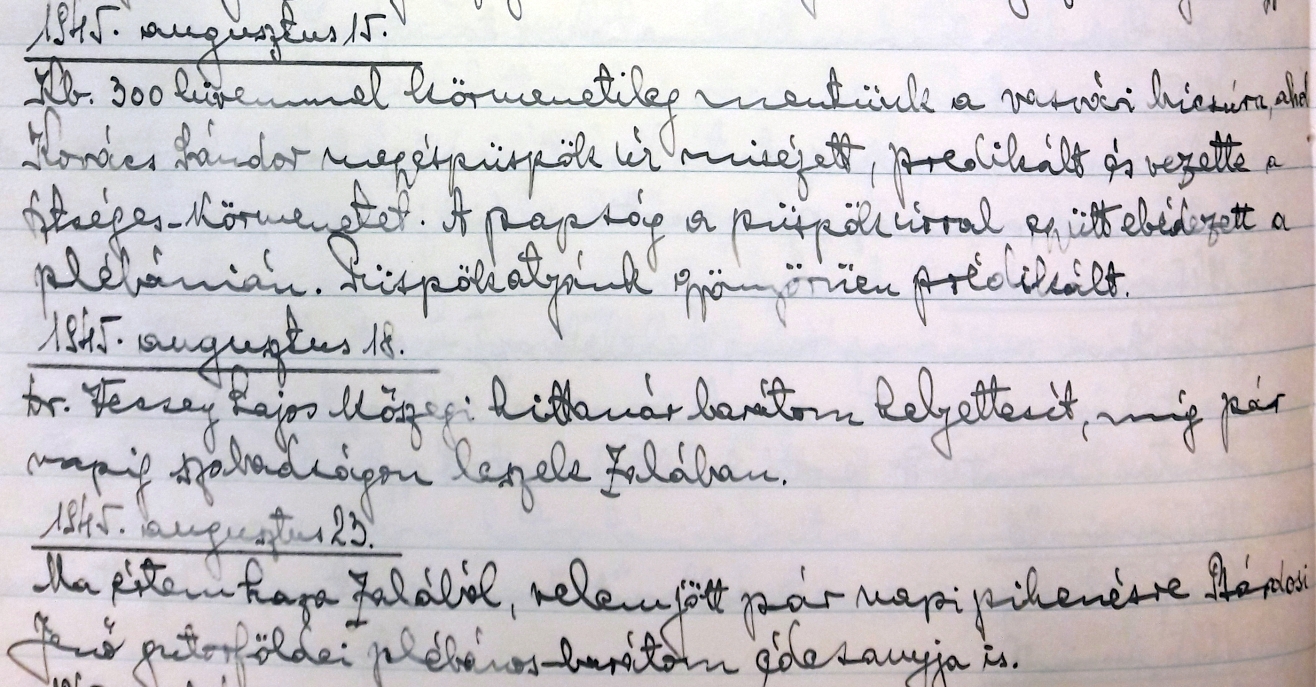 1945. augusztus 15.
Kb. 300 hívemmel körmenetileg mentünk a vasvári búcsúra, ahol
Kovács Sándor megyéspüspök úr misézett, prédikált és vezette a
Körmenetet. A papság a püspök úrral együtt ebédezett a
plébánián. Püspökatyánk gyönyörűen prédikált.
1945. augusztus 18.
Dr. Lajos Kőszegi hittanár barátom helyettesít, míg pár
napig szabadságon leszek Zalában.
1945. augusztus 23.
Ma értem haza Zalából, velem jött pár napi pihenésre
Jenő gutorföldei plébános-barátom édesanyja is.